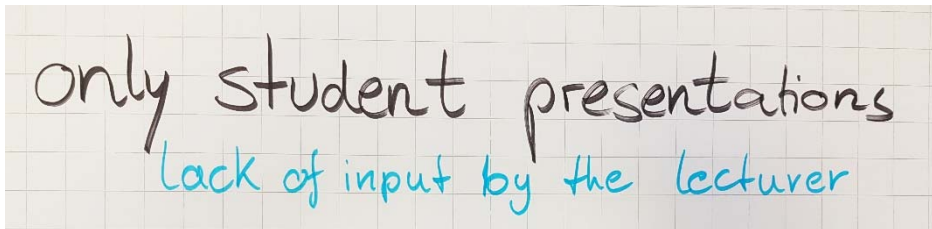 only student presentations
lack of input by the lecturer